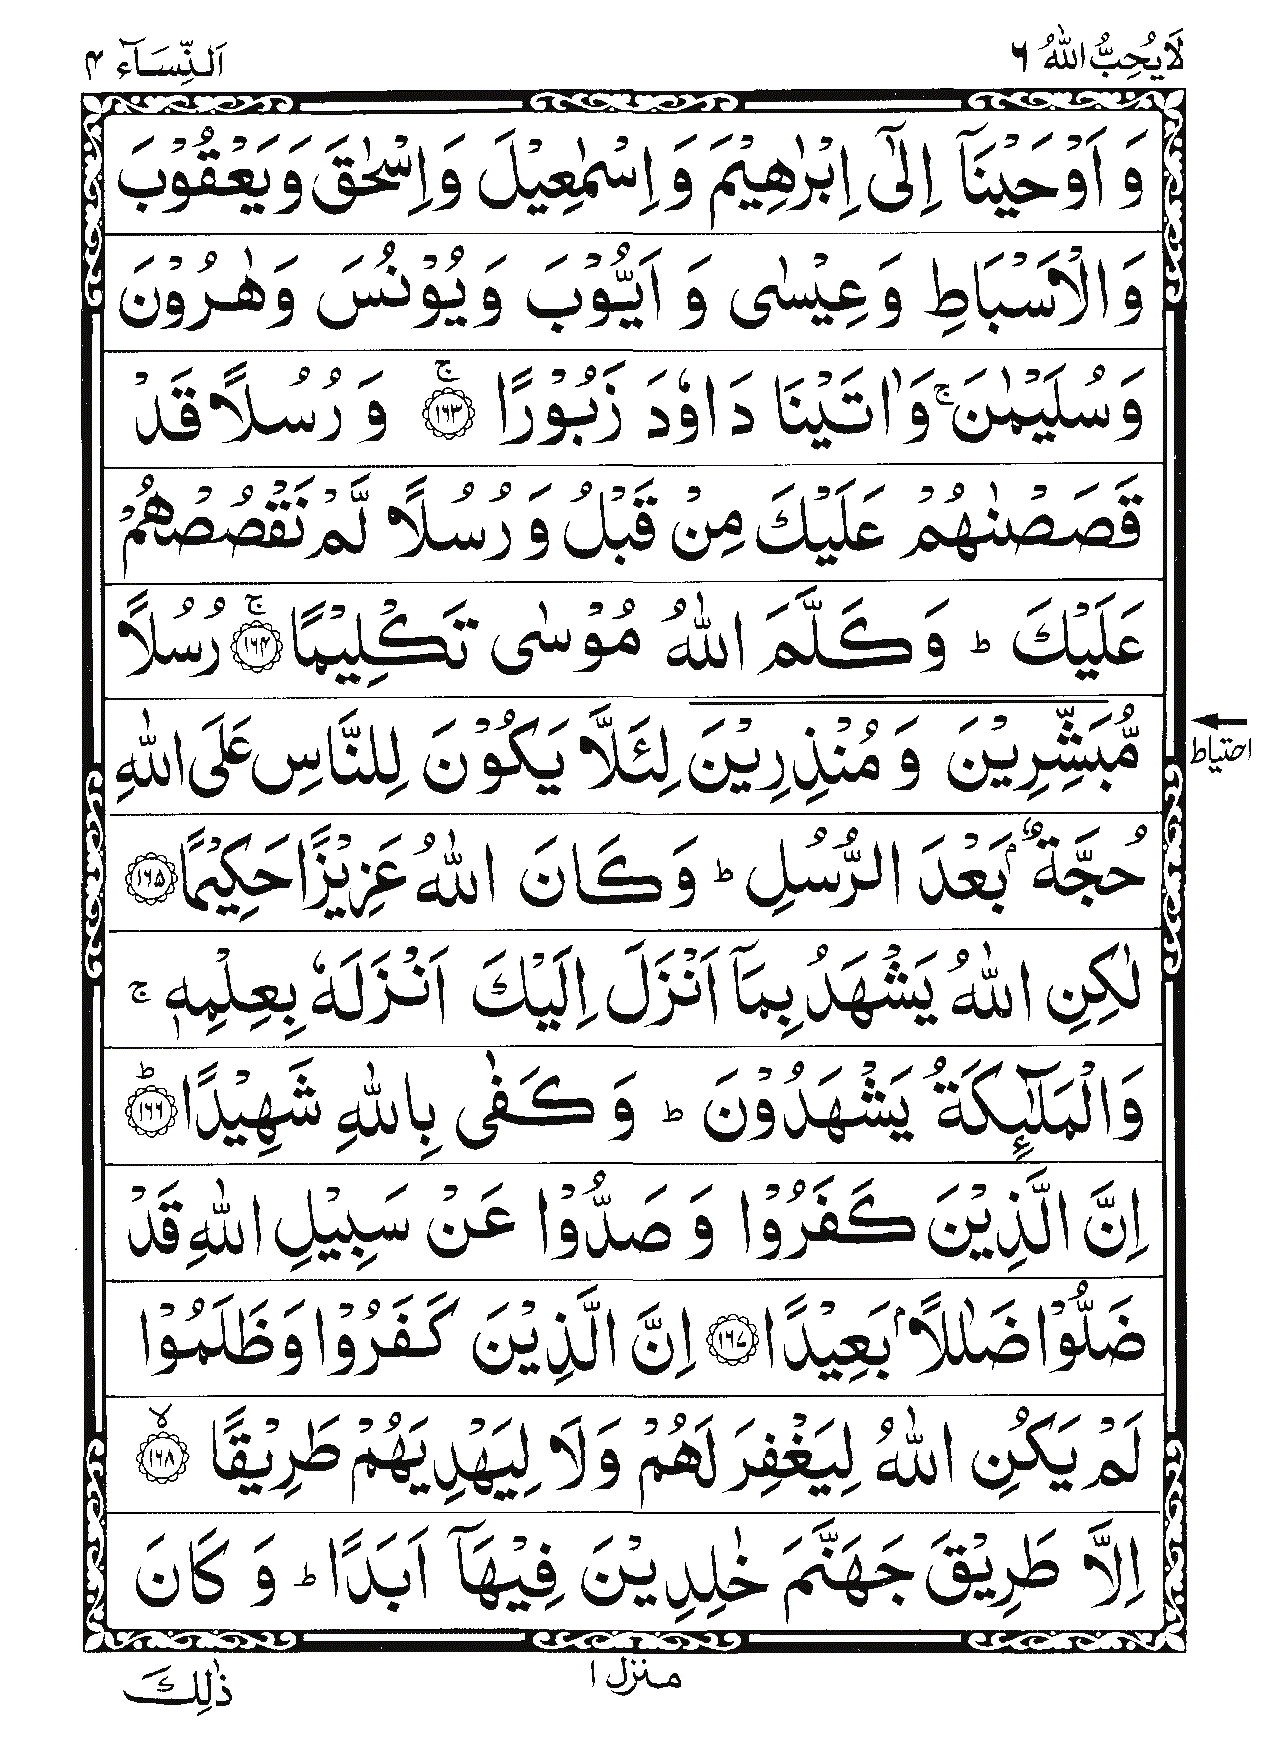 لَا يُحِبُّ اللّٰهُ ٦
اَلنِّسَآء ۴
وَ اَوْحَيْنَآ اِلٰٓى اِبْرٰهِيْمَ وَ اِسْمٰعِيْلَ وَ اِسْحٰقَ وَ يَعْقُوْبَ
وَ الْاَسْبَاطِ وَ عِيْسٰى وَ اَيُّوْبَ وَ يُوْنُسَ وَ هٰرُوْنَ
وَ سُلَيْمٰنَ ۚ وَ اٰتَيْنَا دَاوٗدَ زَبُوْرًا ۚ ﴿۱۶۳﴾ وَ رُسُلًا قَدْ
قَصَصْنٰهُمْ عَلَيْكَ مِنْ قَبْلُ وَ رُسُلًا لَّمْ نَقْصُصْهُمْ
عَلَيْكَ ؕ وَ كَلَّمَ اللّٰهُ مُوْسٰى تَكْلِيْمًا ۚ ﴿۱۶۴﴾ رُسُلًا
مُّبَشِّرِيْنَ وَ مُنْذِرِيْنَ لِئَلَّا يَكُوْنَ لِلنَّاسِ عَلَى اللّٰهِ
احتیاط
حُجَّةٌۢ بَعْدَ الرُّسُلِ ؕ وَ كَانَ اللّٰهُ عَزِيْزًا حَكِيْمًا ﴿۱۶۵﴾
لٰكِنِ اللّٰهُ يَشْهَدُ بِمَآ اَنْزَلَ اِلَيْكَ اَنْزَلَهٗ بِعِلْمِهٖ ۚ
وَ الْمَلٰٓئِكَةُ يَشْهَدُوْنَ ؕ وَ كَفٰى بِاللّٰهِ شَهِيْدًا ؕ ﴿۱۶۶﴾
اِنَّ الَّذِيْنَ كَفَرُوْا وَ صَدُّوْا عَنْ سَبِيْلِ اللّٰهِ قَدْ
ضَلُّوْا ضَلٰلًاۢ بَعِيْدًا ﴿۱۶۷﴾ اِنَّ الَّذِيْنَ كَفَرُوْا وَ ظَلَمُوْا
لَمْ يَكُنِ اللّٰهُ لِيَغْفِرَ لَهُمْ وَ لَا لِيَهْدِيَهُمْ طَرِيْقًا ۙ ﴿۱۶۸﴾
اِلَّا طَرِيْقَ جَهَنَّمَ خٰلِدِيْنَ فِيْهَآ اَبَدًا ؕ وَ كَانَ
منزل ۱
ذٰلِكَ